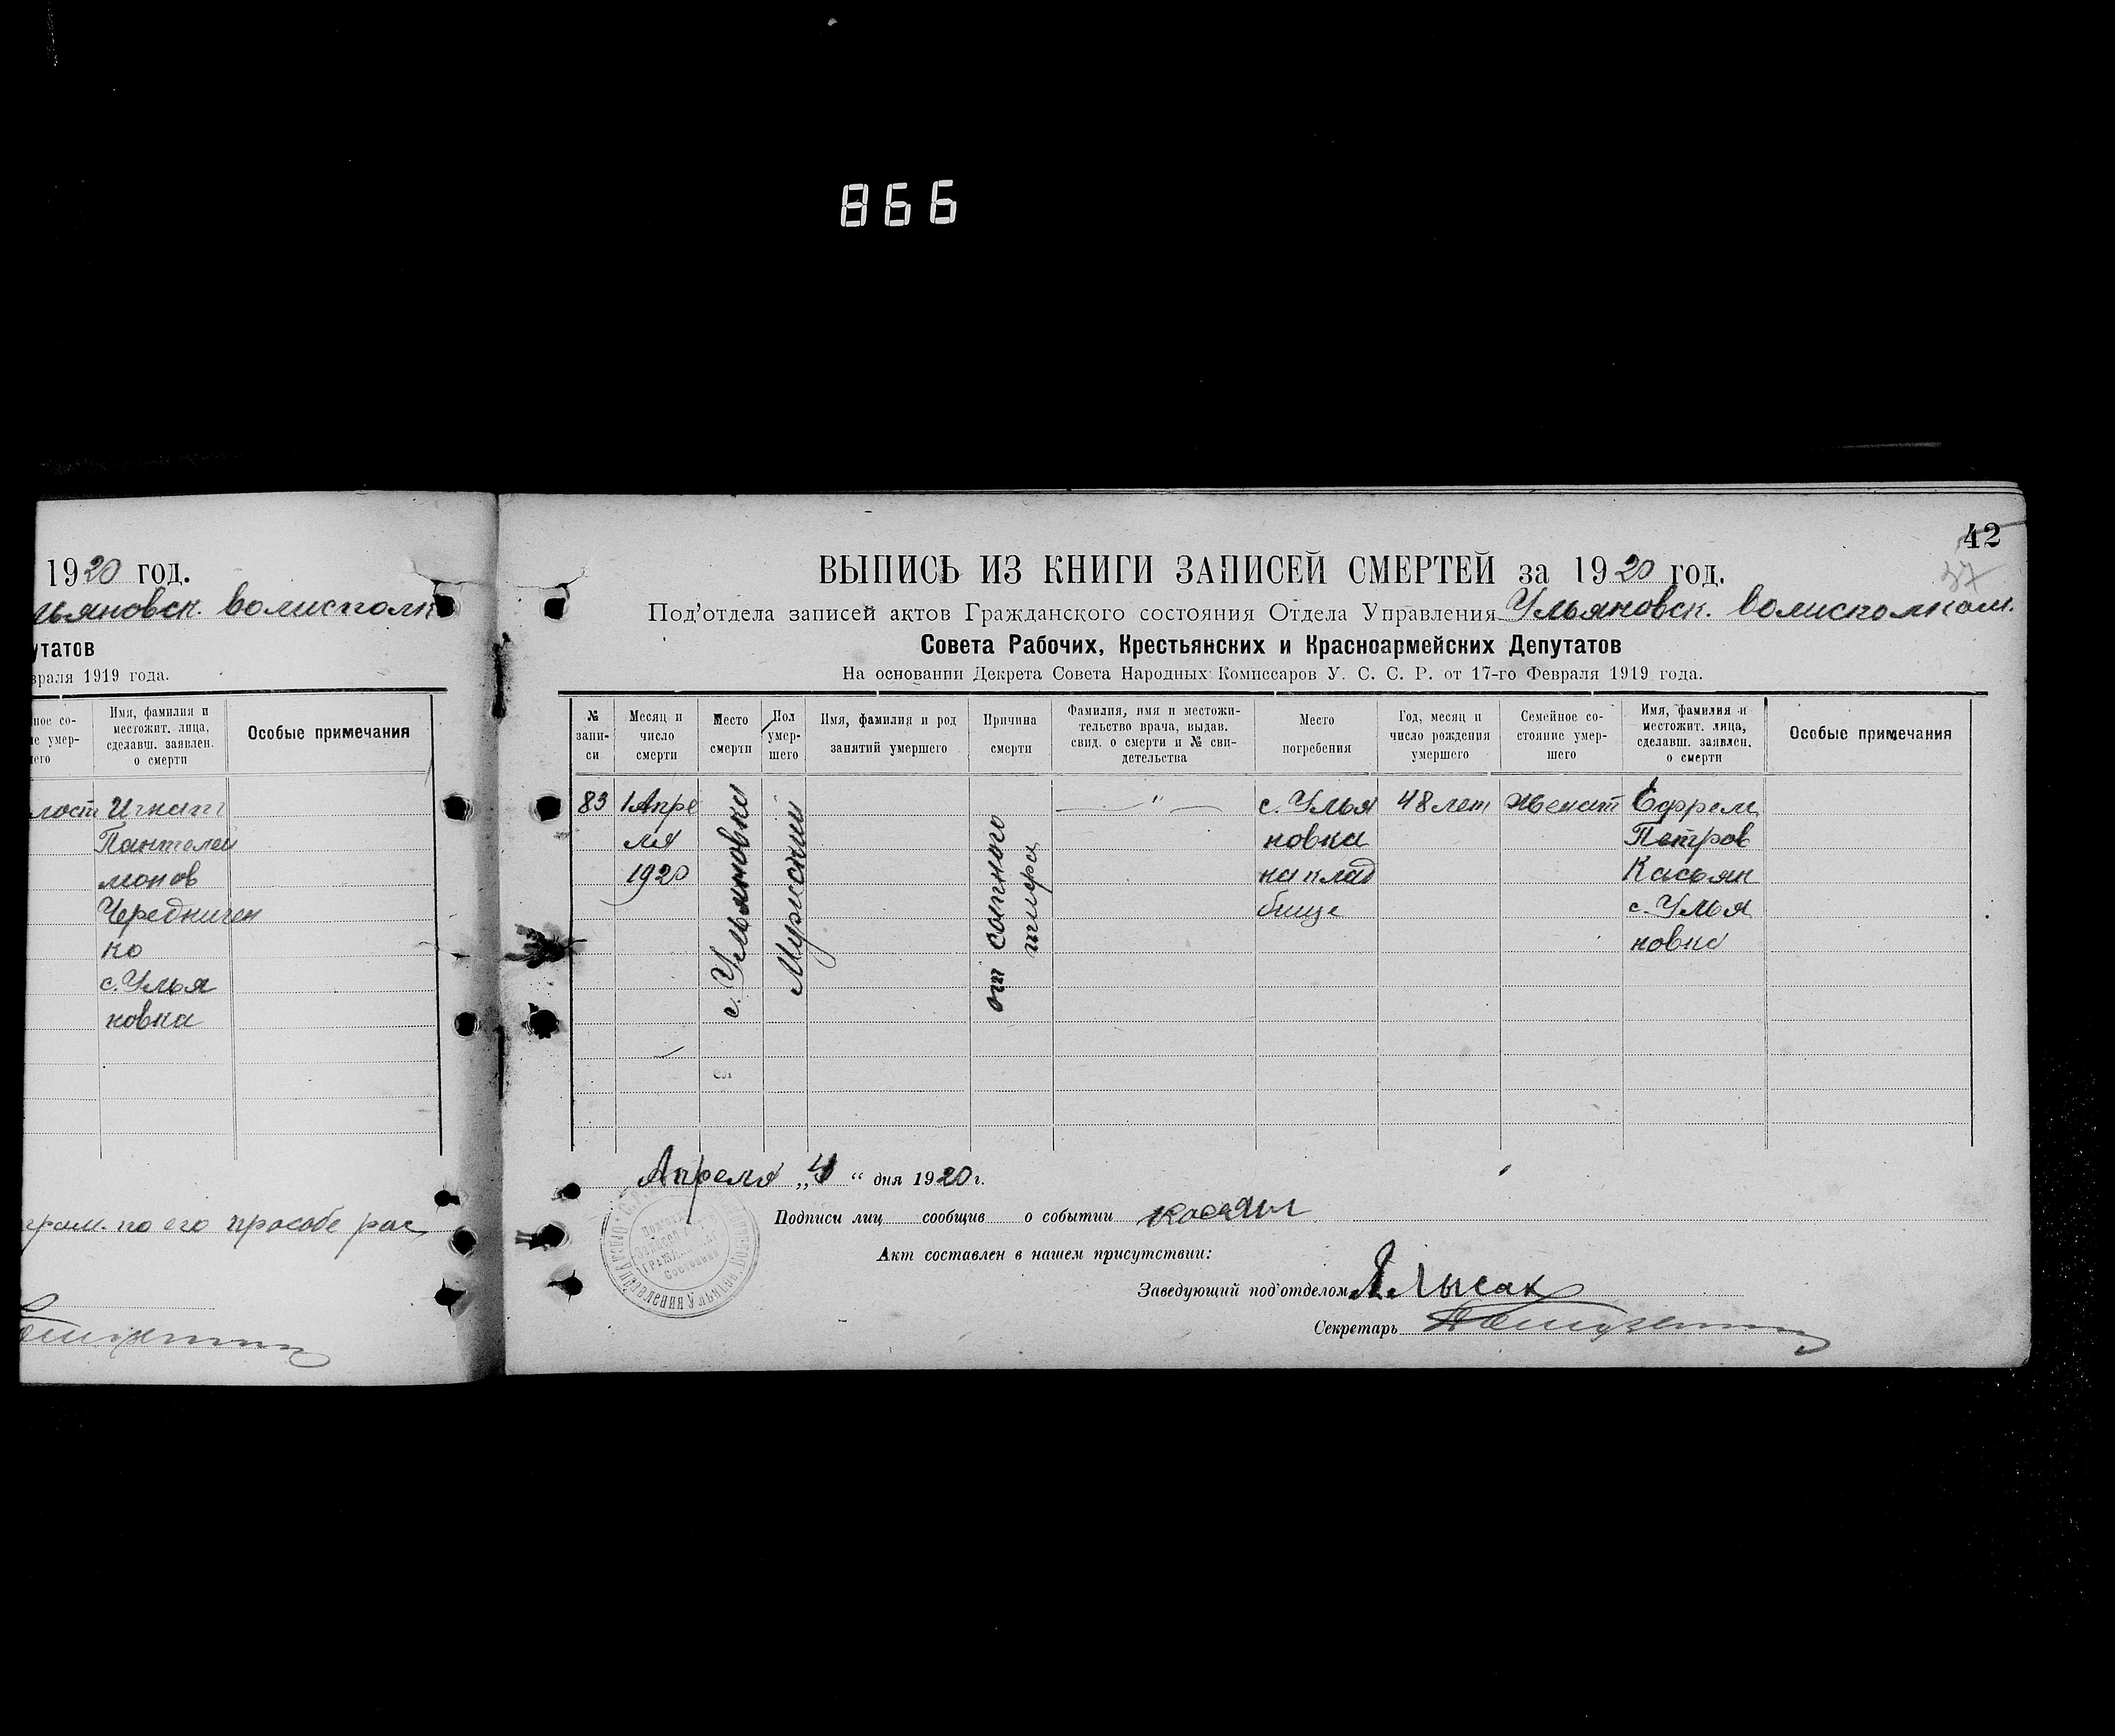 866
1920 год.
льяновск. волисполк
утатов
враля 1919 года.
ное со-
е умер-
его
Имя, фамилия и
местожит. лица,
сделавш. заявлен.
о смерти
Особые примечания
лост Игнат
Пантелей
монов
Чередничен
ко
с. Улья
новка
грам. по его прозбе рас
42
37
ВЫПИСЬ ИЗ КНИГИ ЗАПИСЕЙ СМЕРТЕЙ за 1920 год.
Под'отдела записей актов Гражданского состояния Отдела Управления Ульяновск. волисполком.
Совета Рабочих, Крестьянских и Красноармейских Депутатов
На основании Декрета Совета Народных Комиссаров У. С. С. Р. от 17-го Февраля 1919 года.
№
запи-
си
Месяц и
число
смерти
Место
смерти
Пол
умер-
шего
Имя, фамилия и род
занятий умершего
Причина
смерти
Фамилия, имя и местожи-
тельство врача, выдав.
свид. о смерти и № сви-
детельства
Место
погребения
Год, месяц и
число рождения
умершего
Семейное со-
стояние умер-
шего
Имя, фамилия и
местожит. лица,
сделавш. заявлен.
о смерти
Особые примечания
83
1 Апре
ля
1920
с. Ульяновка
Мужской
от сыпного
тифа
— " —
с. Улья
новка
на клад
бище
48 лет
женат
Ефрем
Петров
Касьян
с. Улья
новка
Апреля „4“ дня 1920 г.
Подписи лиц сообщив о событии Касян
Акт составлен в нашем присутствии:
Заведующий под'отделом Лысак
Секретарь